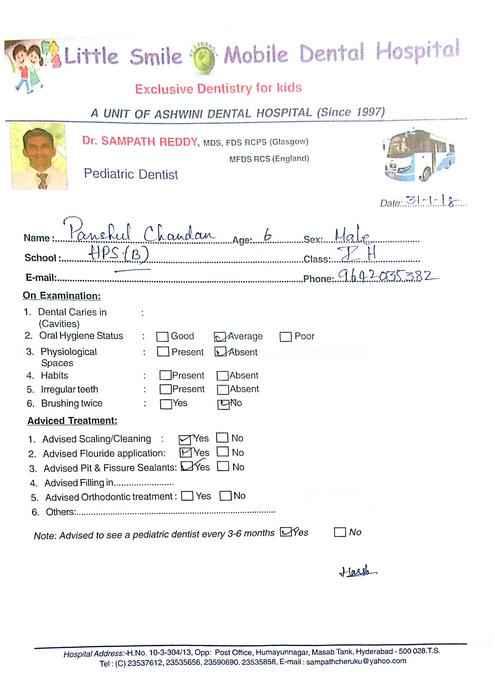 Little Smile Mobile Dental Hospital
Exclusive Dentistry for kids
A UNIT OF ASHWINI DENTAL HOSPITAL (Since 1997)
Dr. SAMPATH REDDY, MDS, FDS RCPS (Glasgow)
MFDS RCS (England)
Pediatric Dentist
Date: 31-1-18
Name: Panshul Chandan Age: 6 Sex: Male
School: HPS (B) Class: I H
E-mail: Phone: 9642035382
On Examination:
1. Dental Caries in :
(Cavities)
2. Oral Hygiene Status : Good Average Poor
3. Physiological : Present Absent
Spaces
4. Habits : Present Absent
5. Irregular teeth : Present Absent
6. Brushing twice : Yes No
Adviced Treatment:
1. Advised Scaling/Cleaning : Yes No
2. Advised Flouride application: Yes No
3. Advised Pit & Fissure Sealants: Yes No
4. Advised Filling in......................
5. Advised Orthodontic treatment : Yes No
6. Others:..............................................................
Note: Advised to see a pediatric dentist every 3-6 months Yes No
Hospital Address:-H.No. 10-3-304/13, Opp: Post Office, Humayunnagar, Masab Tank, Hyderabad - 500 028.T.S.
Tel : (C) 23537612, 23535656, 23590690, 23535858, E-mail : sampathcheruku@yahoo.com